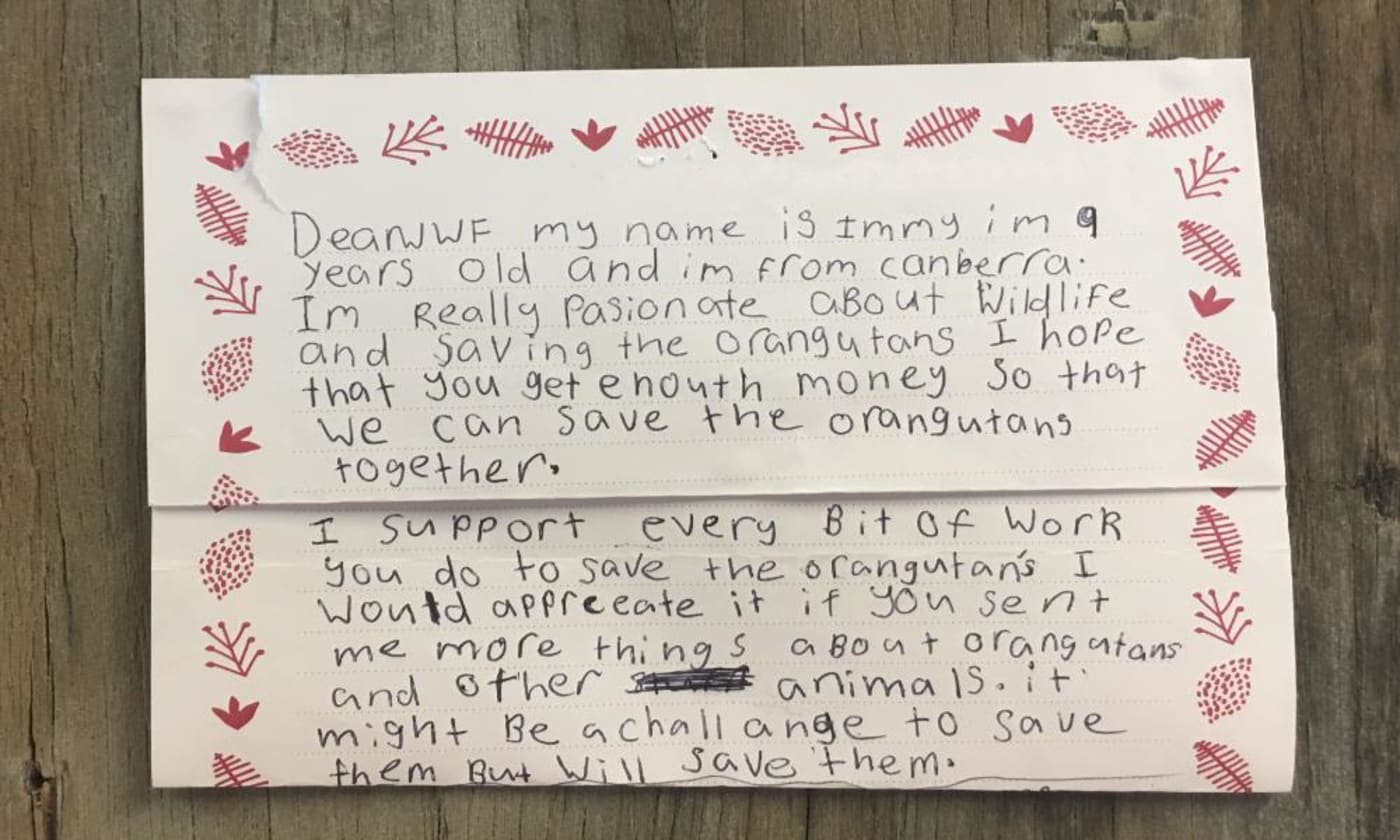 Dear WWF my name is Immy im 9
years old and im from canberra.
Im Really Pasionate aBout Wildlife
and saving the orangutans I hope
that you get enouth money so that
we can save the orangutans
together.
I support every Bit of work
you do to save the orangutan's I
Would apprecate it if you sent
me more things aBout orangutans
and other animals. it
might Be a challange to save
them But Will save them.